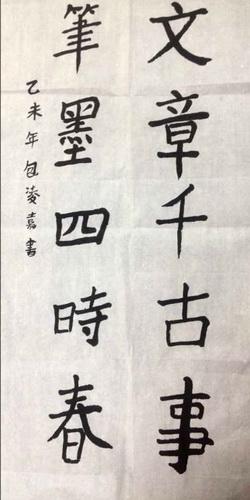 文章千古事
筆墨四時春
乙未年包凌嘉書